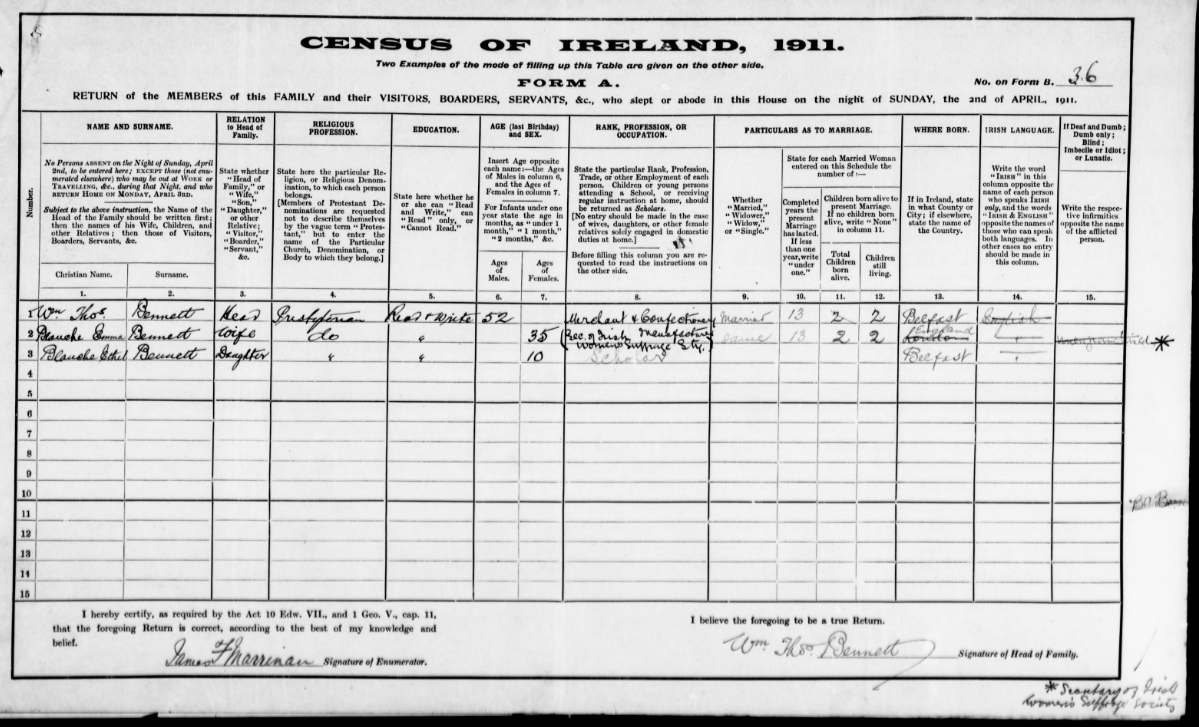 CENSUS OF IRELAND, 1911.
Two Examples of the mode of filling up this Table are given on the other side.
FORM A.
No. on Form B. 36
RETURN of the MEMBERS of this FAMILY and their VISITORS, BOARDERS, SERVANTS, &c., who slept or abode in this House on the night of SUNDAY, the 2nd of APRIL, 1911.
Number.
NAME AND SURNAME.
No Persons ABSENT on the Night of Sunday, April
2nd, to be entered here; EXCEPT those (not enu-
merated elsewhere) who may be out at WORK or
TRAVELLING, &c., during that Night, and who
RETURN HOME ON MONDAY, APRIL 3RD.
Subject to the above instruction, the Name of the
Head of the Family should be written first;
then the names of his Wife, Children, and
other Relatives; then those of Visitors,
Boarders, Servants, &c.
Christian Name.
Surname.
1.
2.
RELATION
to Head of
Family.
State whether
"Head of
Family," or
"Wife,"
"Son,"
"Daughter,"
or other
Relative;
"Visitor,"
"Boarder,"
"Servant,"
&c.
3.
RELIGIOUS
PROFESSION.
State here the particular Re-
ligion, or Religious Denom-
ination, to which each person
belongs.
[Members of Protestant De-
nominations are requested
not to describe themselves
by the vague term "Protes-
tant," but to enter the
name of the Particular
Church, Denomination, or
Body to which they belong.]
4.
EDUCATION.
State here whether he
or she can "Read
and Write," can
"Read" only, or
"Cannot Read."
5.
AGE (last Birthday)
and SEX.
Insert Age opposite
each name:—the Ages
of Males in column 6,
and the Ages of
Females in column 7.
For Infants under one
year state the age in
months, as "under 1
month," "1 month,"
"2 months," &c.
Ages
of
Males.
Ages
of
Females.
6.
7.
RANK, PROFESSION, OR
OCCUPATION.
State the particular Rank, Profession,
Trade, or other Employment of each
person. Children or young persons
attending a School, or receiving
regular instruction at home, should
be returned as Scholars.
[No entry should be made in the case
of wives, daughters, or other female
relatives solely engaged in domestic
duties at home.]
Before filling this column you are re-
quested to read the instructions on
the other side.
8.
PARTICULARS AS TO MARRIAGE.
Whether
"Married,"
"Widower,"
"Widow,"
or "Single."
9.
State for each Married Woman
entered on this Schedule the
number of :—
Completed
years the
present
Marriage
has lasted.
If less
than one
year, write
"under
one."
10.
Children born alive to
present Marriage.
If no children born
alive, write "None"
in column 11.
Total
Children
born
alive.
Children
still
living.
11.
12.
WHERE BORN.
If in Ireland, state
in what County or
City; if elsewhere,
state the name of
the Country.
13.
IRISH LANGUAGE.
Write the word
"IRISH" in this
column opposite the
name of each person
who speaks IRISH
only, and the words
"IRISH & ENGLISH"
opposite the names of
those who can speak
both languages. In
other cases no entry
should be made in
this column.
14.
If Deaf and Dumb;
Dumb only;
Blind;
Imbecile or Idiot;
or Lunatic.
Write the respec-
tive infirmities
opposite the name
of the afflicted
person.
15.
1 Wm Thos. Bennett Head Presbyterian Read & Write 52 Merchant & Confectionery Married 13 2 2 Belfast English
2 Blanche Emma Bennett Wife do " 35 Sec. of Irish Manufacture Women's Suffrage Sty. same 13 2 2 England London "
3 Blanche Ethel Bennett Daughter " " 10 Scholar Belfast "
4
5
6
7
8
9
10
11
12
13
14
15
I hereby certify, as required by the Act 10 Edw. VII., and 1 Geo. V., cap. 11,
that the foregoing Return is correct, according to the best of my knowledge and
belief.
James F Marrinan Signature of Enumerator.
I believe the foregoing to be a true Return.
Wm. Thos. Bennett Signature of Head of Family.
* Secretary of Irish
Women's Suffrage Society